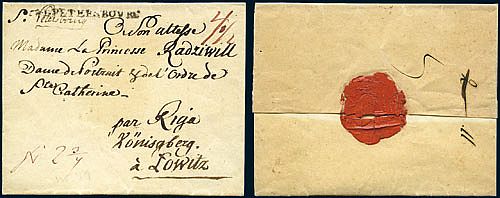 St. PETERSBOURG
à Son altesse
Madame La Princesse Radziwill
Dame de Portrait & de l'Ordre de
Ste Catherine
par Riga
Königsberg.
à Lowitz